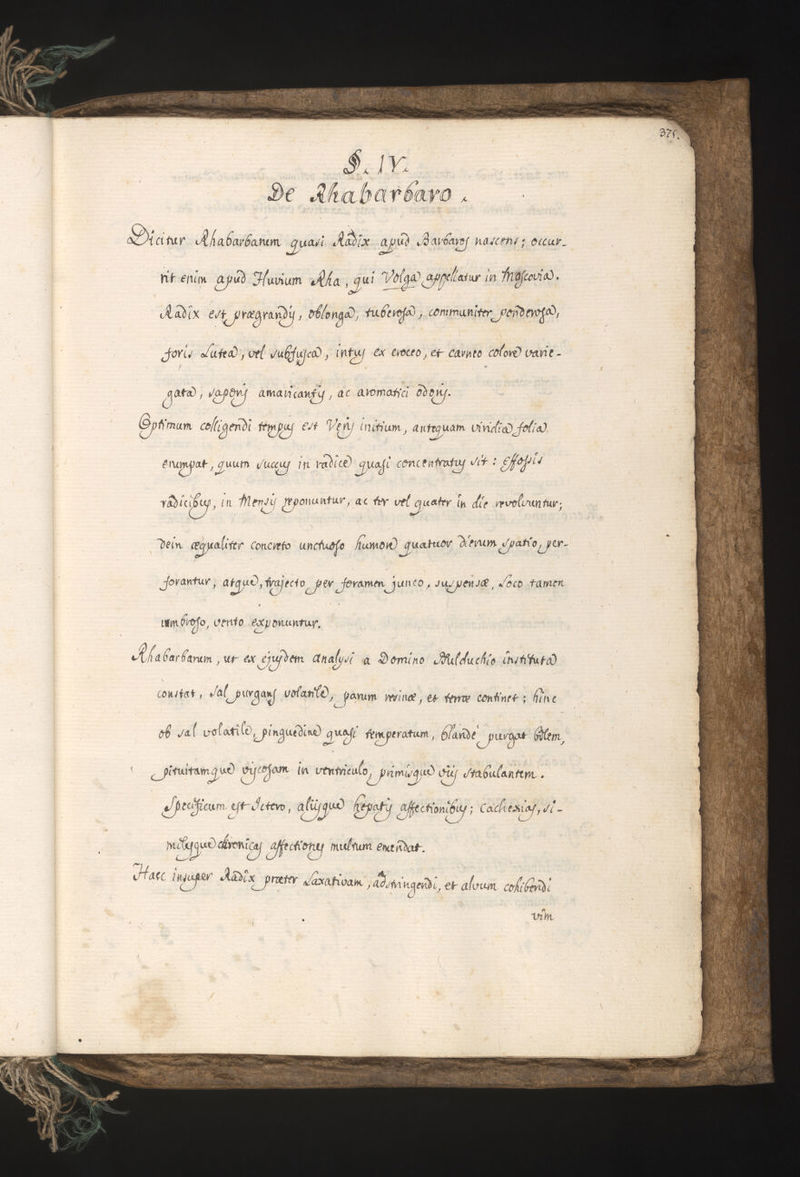 375.
§. IV.
De Rhabarbaro.
Dicitur Rhabarbarum quasi Radix apud Barbaros nascens; occur-
rit enim apud Fluvium Rha, qui Volga appellatur in Moscovia.
Radix est prægrandis, oblonga, tuberosa, communiter ponderosa,
foris Lutea, vel subfusca, intus ex croceo, et carneo colore varie-
gata, saporis amaricantis, ac aromatici odoris.
Optimum colligendi tempus est Veris initium, antequam viridia folia
erumpat, quum succus in radice quasi concentratus sit: effossis
radicibus, in Mensis reponuntur, ac ter vel quater in die revolvuntur;
dein æqualiter concreto unctuoso humore quatuor dierum spatio, per-
forantur, atque, trajecto per foramen junco, suspensæ, Loco tamen
umbroso, vento exponuntur.
Rhabarbarum, ut ex ejusdem analysi a Domino instituta
constat, sal purgans volatile, parum resinæ, et terræ continet; hinc
ob sal volatile, pinguedine quasi temperatum, blande purgat bilem,
pituitamque viscosam in ventriculo, primisque viis stabulantem.
Specificum est Ictero, aliisque hepatis affectionibus; Cachexias, si-
milesque chronicas affectiones multum emendat.
Haec insuper Radix præter Laxativam, adstringendi, et alvum cohibendi
vim